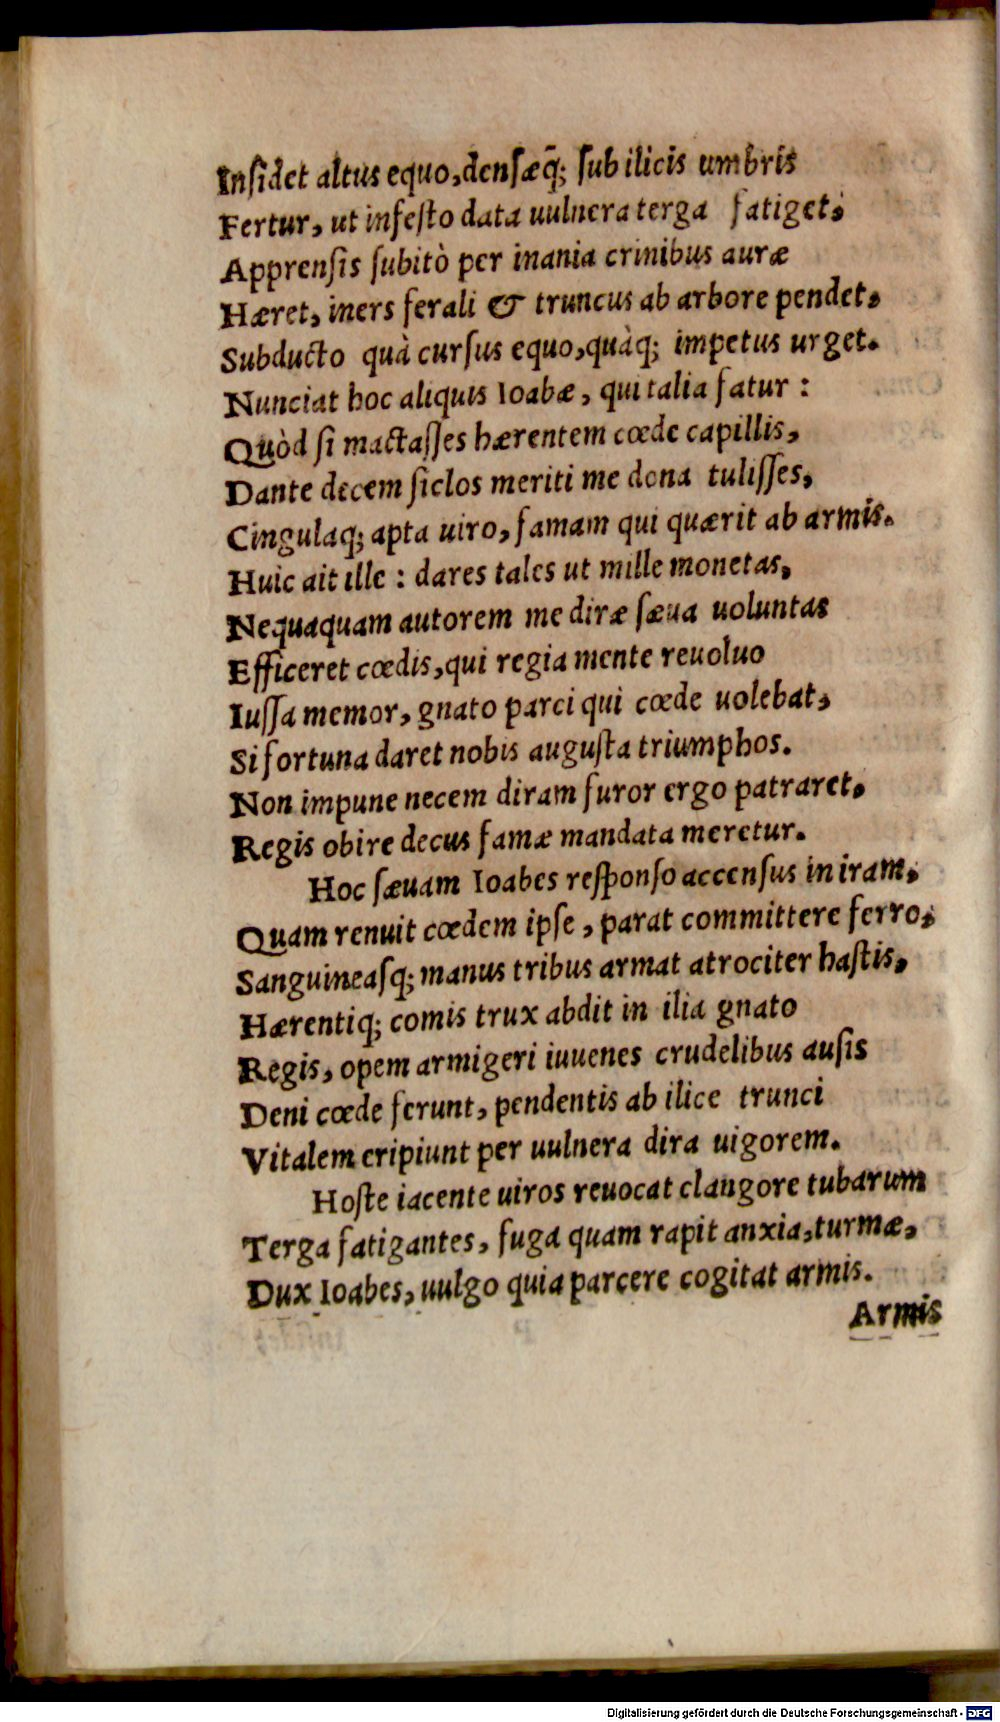 Inſidet altus equo, denſæq̃; ſub ilicis umbris
Fertur, ut infeſto data uulnera terga fatiget;
Apprenſis ſubitò per inania crinibus auræ
Hæret, iners ferali & truncus ab arbore pendet,
Subducto quà curſus equo, quàq; impetus urget.
Nunciat hoc aliquis Ioabæ, qui talia fatur:
Quòd ſi mactaſſes hærentem cœde capillis,
Dante decem ſiclos meriti me dona tuliſſes,
Cingulaq; apta uiro, famam qui quærit ab armis.
Huic ait ille: dares tales ut mille monetas,
Nequaquam autorem me diræ ſæua uoluntas
Efficeret cœdis, qui regia mente reuoluo
Iuſſa memor, gnato parci qui cœde uolebat,
Si fortuna daret nobis auguſta triumphos.
Non impune necem diram furor ergo patraret,
Regis obire decus famæ mandata meretur.
Hoc ſæuam Ioabes reſponſo accenſus in iram,
Quam renuit cœdem ipſe, parat committere ferro,
Sanguineaſq; manus tribus armat atrociter haſtis,
Hærentiq; comis trux abdit in ilia gnato
Regis, opem armigeri iuuenes crudelibus auſis
Deni cœde ferunt, pendentis ab ilice trunci
Vitalem eripiunt per uulnera dira uigorem.
Hoſte iacente uiros reuocat clangore tubarum
Terga fatigantes, fuga quam rapit anxia, turmæ,
Dux Ioabes, uulgo quia parcere cogitat armis.
Armis
Digitalisierung gefördert durch die Deutsche Forschungsgemeinschaft - DFG